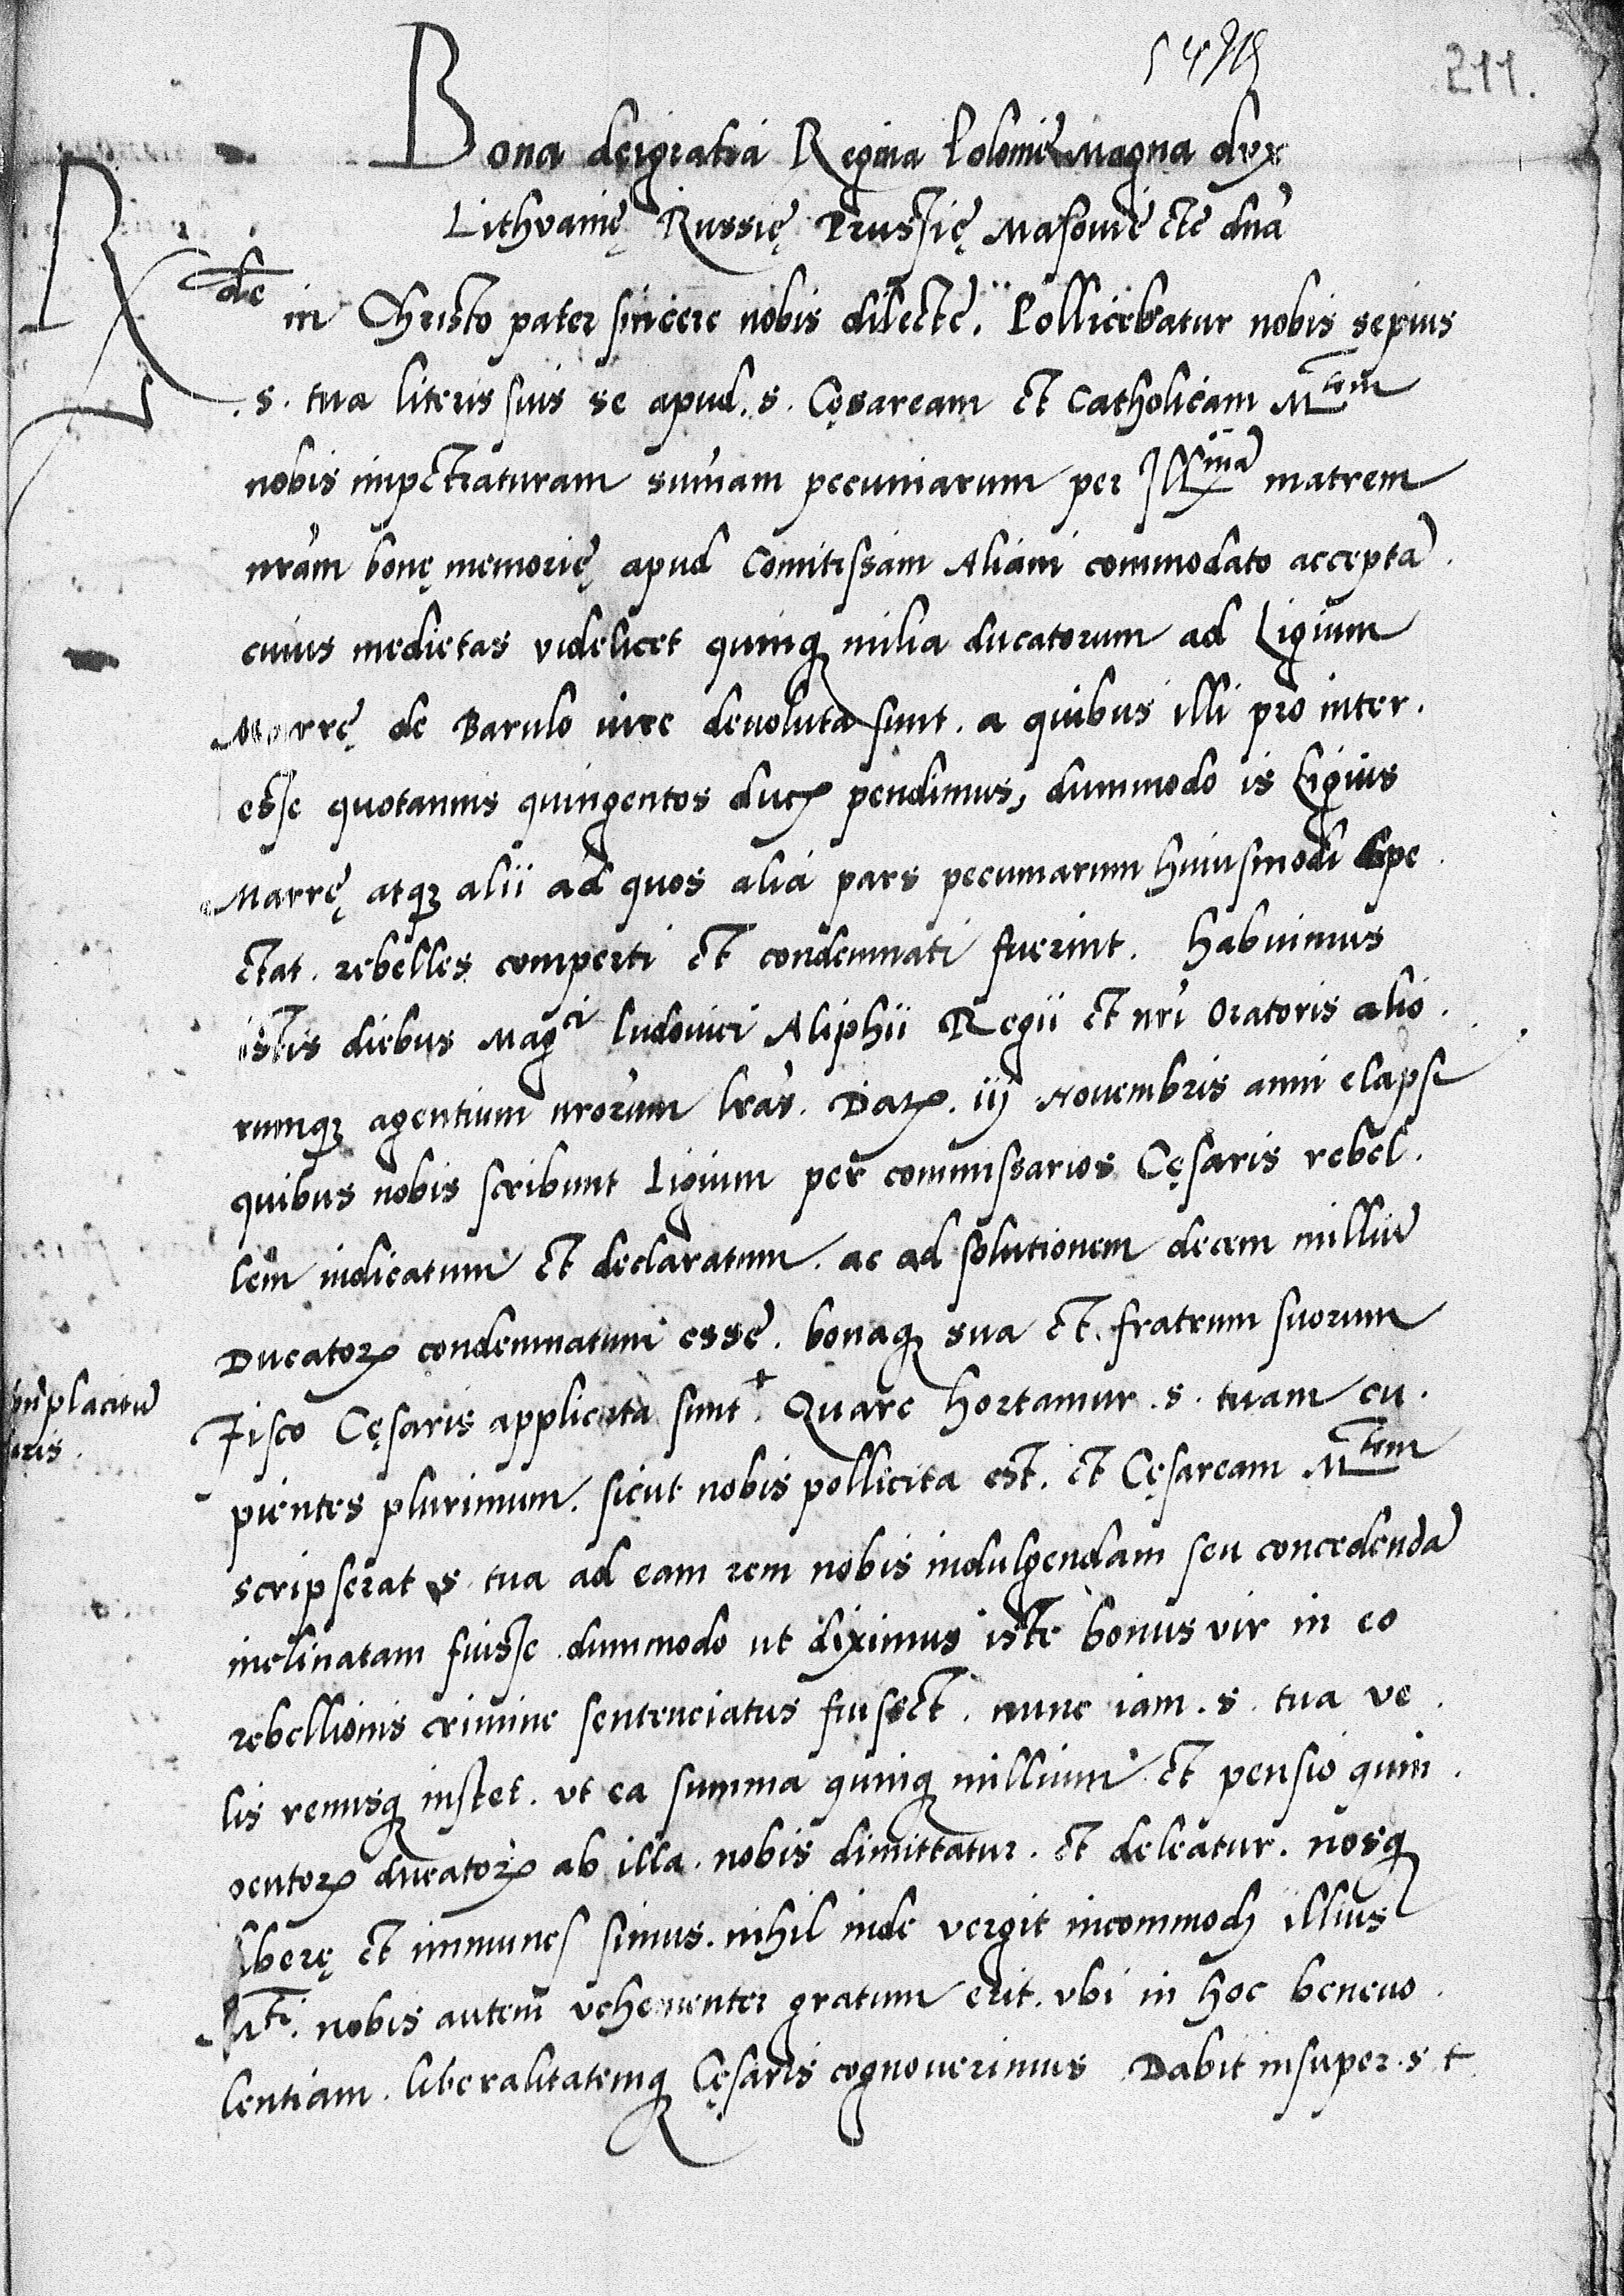 211.
Bona deigratia Regina Polonię Magna dux
Lithvanię Russię Prussię Masovię etc dn̄a
Rde in Christo pater sincere nobis dilecte. Pollicebatur nobis sepius
.s. tua literis suis se apud .s. Cęsaream et Catholicam Mtem
nobis impetraturam sum̄am pecuniarum per Illmā matrem
nr̄am bonę memorię apud Comitissam Aliani commodato acceptā.
cuius medietas videlicet quinq milia ducatorum ad Ligium
Marrę de Barulo iure devoluta sunt. a quibus illi pro inter.
esse quotannis quingentos ducꝝ pendimus, dummodo is Ligius
Marrę atqꝫ alii ad quos alia pars pecuniarum huiusmodi spe
ctat. rebelles comperti et condemnati fuerint. habuimus
istis diebus Magci ludovici Aliphii Regii et nr̄i Oratoris alio.
rumqꝫ agentium nr̄orum lr̄as. Datꝝ. iij Novembris anni elapsi
quibus nobis scribunt Ligium per commissarios Cęsaris rebel.
lem iudicatum et declaratum. ac ad solutionem decem milliū
Ducatorꝝ condemnatum esse. bonaq sua et fratrum suorum
Fisco Cęsaris applicata sunt + Quare hortamur .s. tuam cu.
pientes plurimum. sicut nobis pollicita est. et Cęsaream Mtem
scripserat s. tua ad eam rem nobis indulgendam seu concedendā
inclinatam fuisse dummodo ut diximus iste bonus vir in eo
rebellionis crimine sentenciatus fuisset. nunc iam .s. tua ve.
lis remisq instet. vt ea summa quinq millium et pensio quin.
gentorꝝ ducatorꝝ ab illa nobis dimittatur. et deleatur. nosq
liberę et immunes simus. nihil inde vergit incommodi illius
Mti. nobis autem vehementer gratum erit. vbi in hoc benevo.
lentiam. liberalitatemq Cęsaris cognoverimus Dabit insuper .s. t
placitū